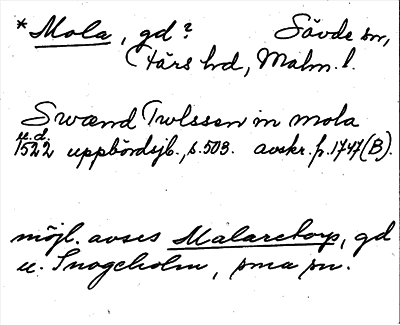 *Mola, gd? Sövde sn,
Färs hd, Malm. l.
Swænd Twlssen in mola
u.d.
1522 uppbördsjb., s. 503. avskr. p. 1747 (B).
möjl. avses Malaretorp, gd
u. Snogeholm, sma sn.